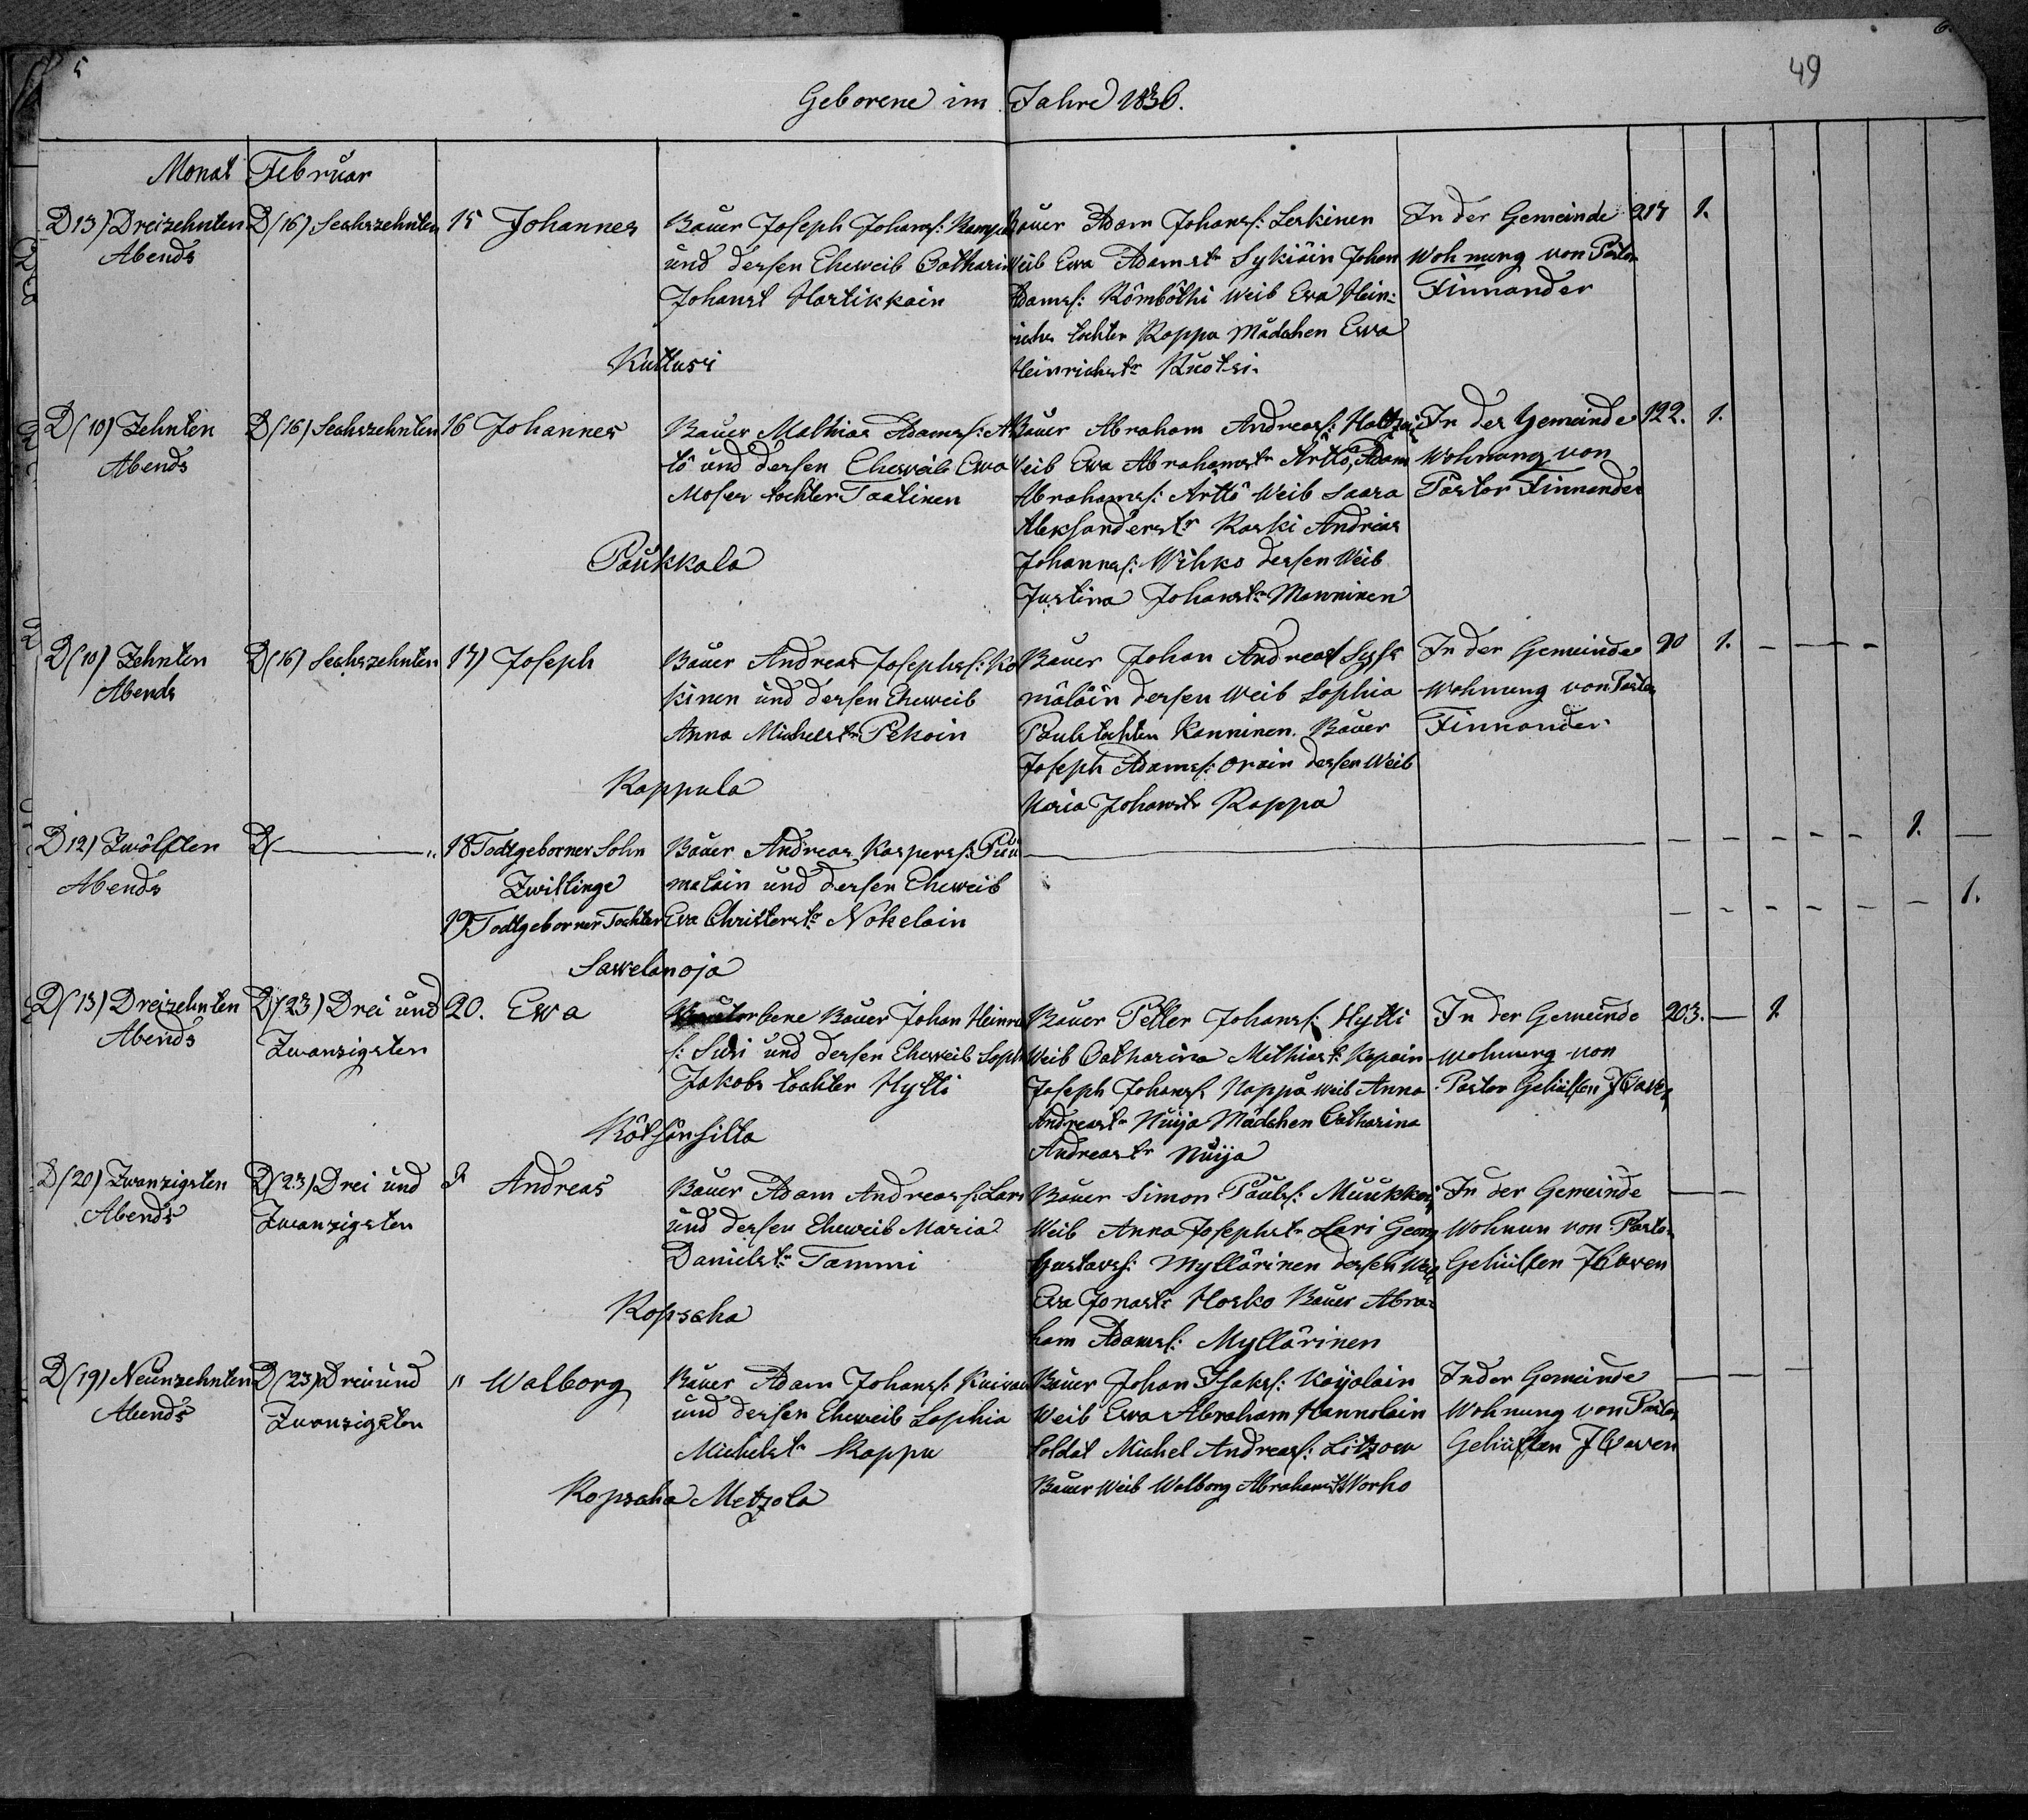 5
6.
49
Geborene im Jahre 1836.
Monat Februar
D 13) Dreizehnten
Abends
D (16) Sechszehnten
15 Johannes
Bauer Joseph Johans:
und dessen Eheweib Catharin
Johanst Hartikkain
Kuttusi
Bauer Adam Johanss: Leskinen
Weib Ewa Adamstr Sykiäin Johan
Adamss: Kömböthi Weib Ewa Hein:
richs tochter Kappa Mädchen Ewa
Heinrichstr Kuotsi.
In der Gemeinde
Wohnung von Pastor
Finnander
217
1.
D (10) Zehnten
Abends
D (16) Sechszehnten
16 Johannes
Bauer Mathias Adamss: Ar
tö und dessen Eheweib Ewa
Moses tochter Taatinen
Paukkala
Bauer Abraham Andreass:
Weib Ewa Abrahamstr Arttö, Adam
Abrahams: Arttö Weib Saara
Aleksanderstr Kaski Andreas
Johannss: Wihko dessen Weib
Justina Johanstr Manninen
In der Gemeinde
Wohnung von
Pastor Finnander
122.
1.
D (10) Zehnten
Abends
D (16) Sechszehnten
17) Joseph
Bauer Andreas Josephss: Ko
kinen und dessen Eheweib
Anna Michelstr Pekoin
Kappula
Bauer Johan Andreas
mäläin dessen Weib Sophia
Pauls tochter Kanninen. Bauer
Joseph Adamss: Orain dessen Weib
Maria Johanstr Kappa
In der Gemeinde
Wohnung von Pastor
Finnander
90
1.
D 12) Zwölften
Abends
D
18 Todtgeborner Sohn
Zwillinge
19 Todtgeborner Tochter
Bauer Andreas Kaspers: Puu
malain und dessen Eheweib
Ewa Christerstr Nökelain
Sawelanoja
1.
1.
D (13) Dreizehnten
Abends
D (23) Drei und
Zwanzigsten
20. Ewa
Bauer Johan Heinr
s: Susi und dessen Eheweib Soph
Jakobs tochter Hytti
Kötsönsilta
Bauer Petter Johanss: Hytti
Weib Catharina Mathiastr Kapain
Joseph Johanss Kappa weib Anna
Andreastr Nuija Mädchen Catharina
Andreastr Nuija
In der Gemeinde
wohnung von
Pastor Gehülfen
203.
1
D (20) Zwanzigsten
Abends
D (23) Drei und
Zwanzigsten
Andreas
Bauer Adam Andreass: Lari
und dessen Eheweib Maria
Danielstr Tammi
Kopsaha
Bauer Simon Pauls: Muukkoi
Weib Anna Josephstr Lari Georg
Gustavss: Myllärinen dessen Weib
Ewa Jonastr Hosko Bauer Abra
ham Adamss: Myllärinen
In der Gemeinde
Wohnun von Pastor
Gehülfen
D (19) Neunzehnten
Abends
D (23) Drei und
Zwanzigsten
" Walborg
Bauer Adam Johanss:
und dessen Eheweib Sophia
Michelstr Kappu
Kopsaha Metzola
Bauer Johan Isakss: Kaijalain
Weib Ewa Abraham Hannolain
Soldat Michel Andreass: Litzow
Bauer Weib Walborg Abrahamstr Worho
In der Gemeinde
Wohnung von Pastor
Gehülfen